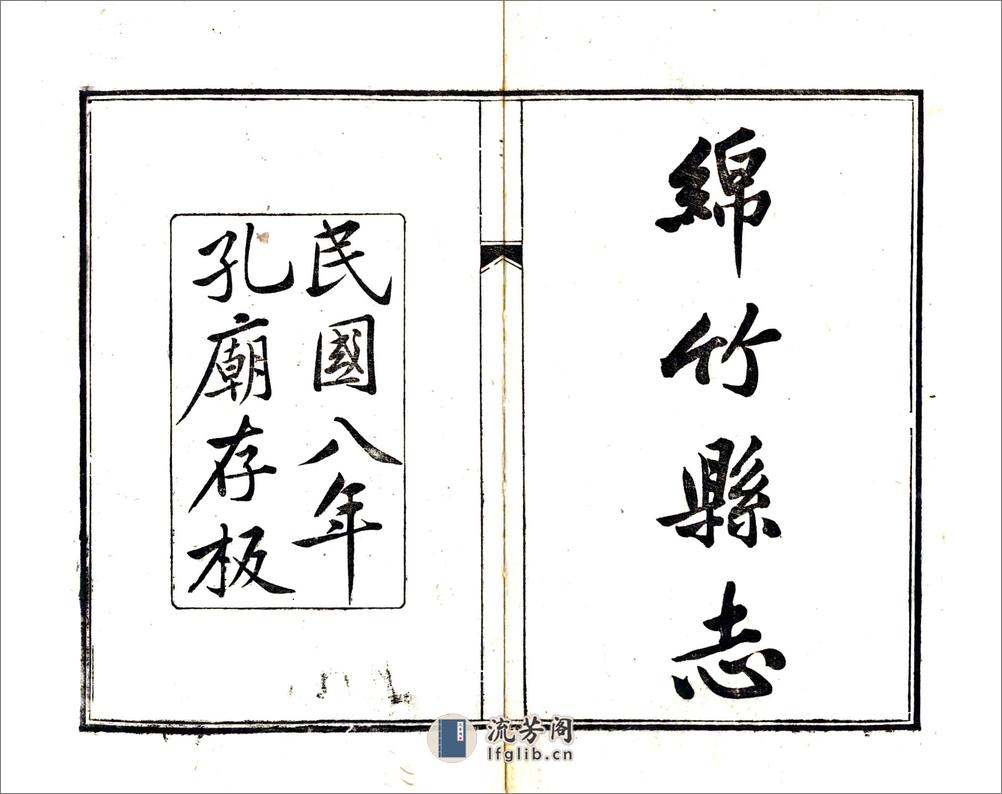 綿竹縣志
民國八年
孔廟存板
流芳阁
lfglib.cn